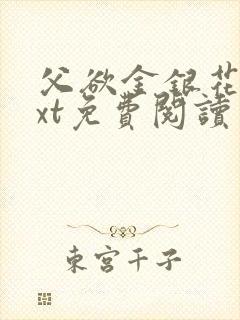 父欲金銀花
xt免費閱讀
東宮千子